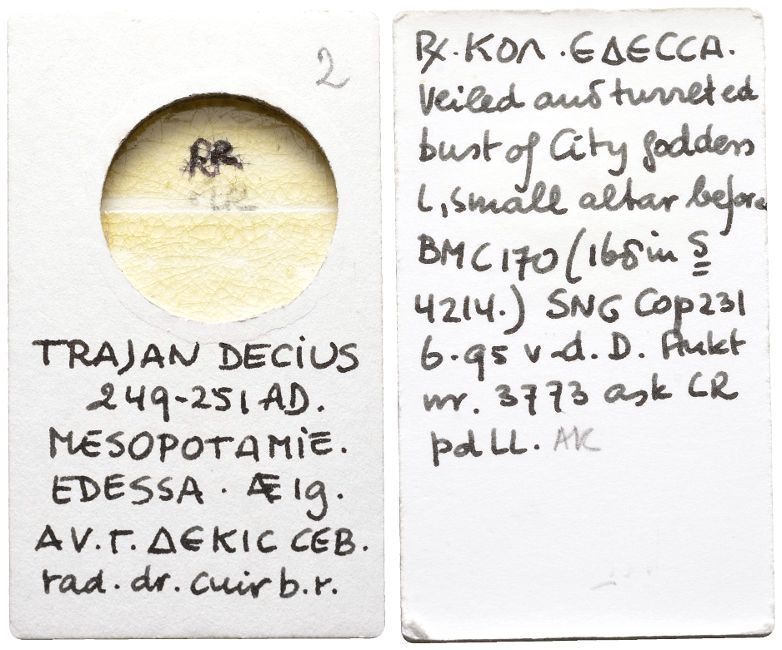 2
RR
TRAJAN DECIUS
249-251 AD.
MESOPOTAMIE.
EDESSA. Æ 19.
AV. Γ. ΔΕΚΙC CEB.
rad. dr. cuir b. r.
R. ΚΟΛ. ΕΔΕCCA.
Veiled and turreted
bust of City goddess
l, small altar before
BMC 170 (168 in S
4214.) SNG Cop 231
6.95 v.d. D.
nr. 3773 ask CR
pd LL. AK